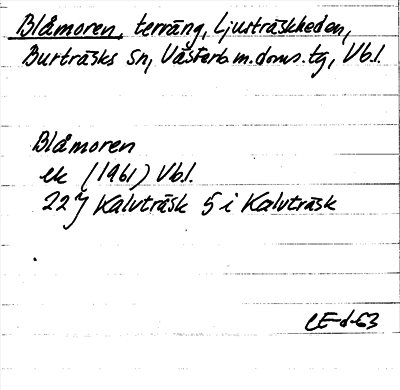 Blåmoren, terräng, Ljusträskheden,
Burträsks sn, Västerb.m.doms.tg, Vbl.
Blåmoren
ek (1961) Vbl.
22J Kalvträsk 5 i Kalvträsk
CE-d-63